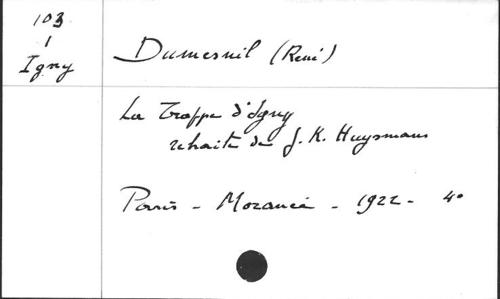 103
1
Igny
Dumesnil (René)
La Trappe d'Igny
retraite de J. K. Huysmans
Paris - Morancé - 1922 - 4°